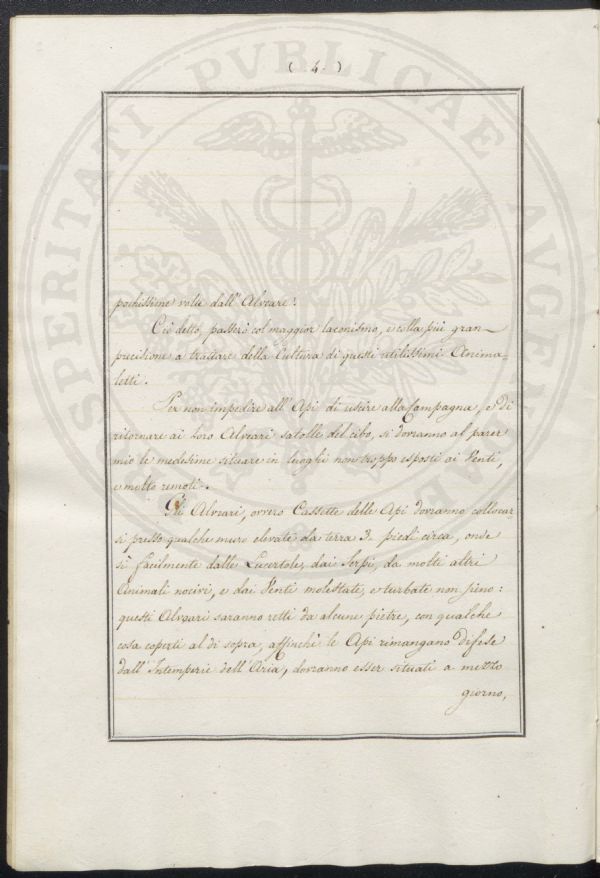 ( 4. )
PROSPERITATI PVBLICAE AVGENDAE
pochissime volte dall'Alveare.
Ciò detto, passerò col maggior laconismo, e colla più gran
precisione a trattare della Cultura di questi utilissimi Anima-
letti.
Per non impedire all'Api di uscire alla Campagna, e di
ritornare ai loro Alveari satolle del cibo, si dovranno al parer
mio le medesime situare in luoghi non troppo esposti ai Venti,
e molto remoti.
Gli Alveari, ovvero Cassette delle Api dovranno collocar-
si presso qualche muro elevate da terra 3. piedi circa, onde
sì facilmente dalle Lucertole, dai Serpi, da molti altri
Animali nocivi, e dai Venti molestate, e turbate non sieno:
questi Alveari saranno retti da alcune pietre, con qualche
cosa coperti al di sopra, affinchè le Api rimangano difese
dall'Intemperie dell'Aria, dovranno esser situati a mezzo
giorno,